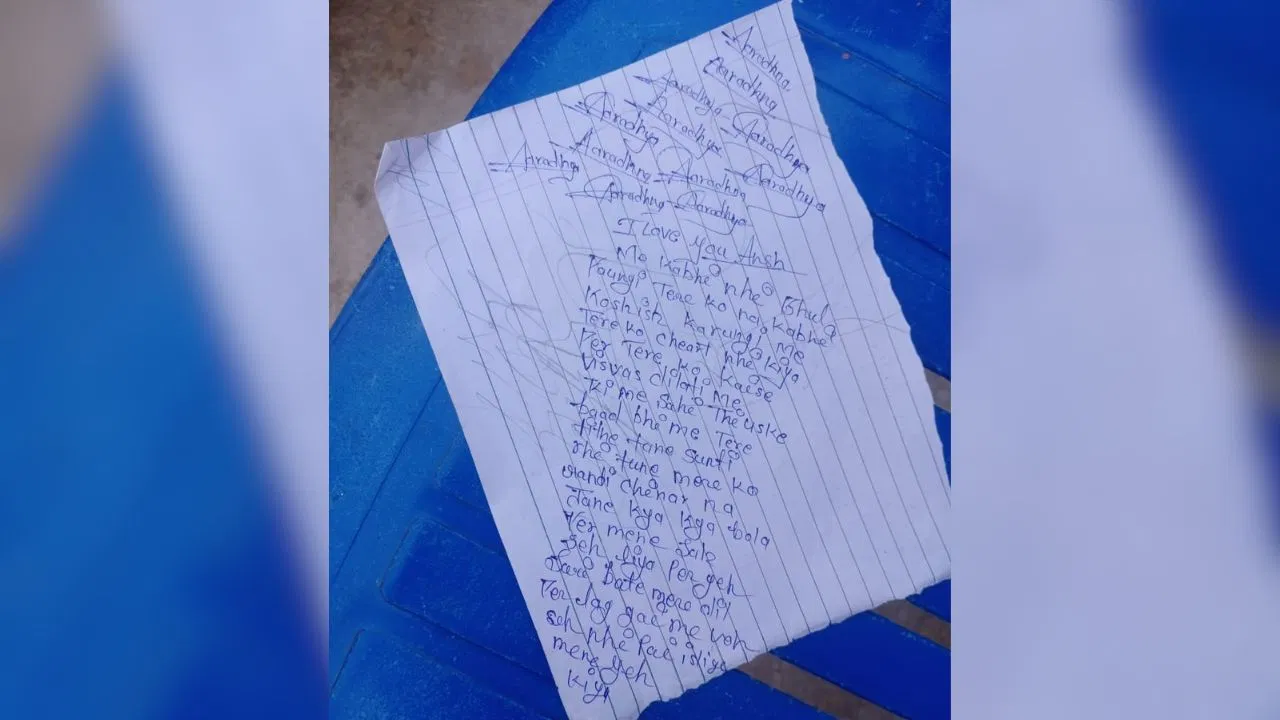 Aaradhna
Aaradhna
Aaradhya Aaradhya
Aaradhya Aaradhya
Aaradhya Aaradhna Aaradhna Aaradhya
Aaradhna Aaradhya
I Love you Ansh
Me Kabhe nhe Bhula
Paungi Tere ko na kabhe
Koshish Karungi me
Tere ko cheart nhe kiya
Per Tere ko Kaise
Visvas dilati me
ki me sahe The uske
baad bhe me Tere
tane sunti
rhe tune mere ko
randi chenar na
Jane kya kya bola
Per mene
Seh liya Per yeh
Sare bate mere dil
Per lag gae me voh
seh nhe isliye
mene yeh
kiya